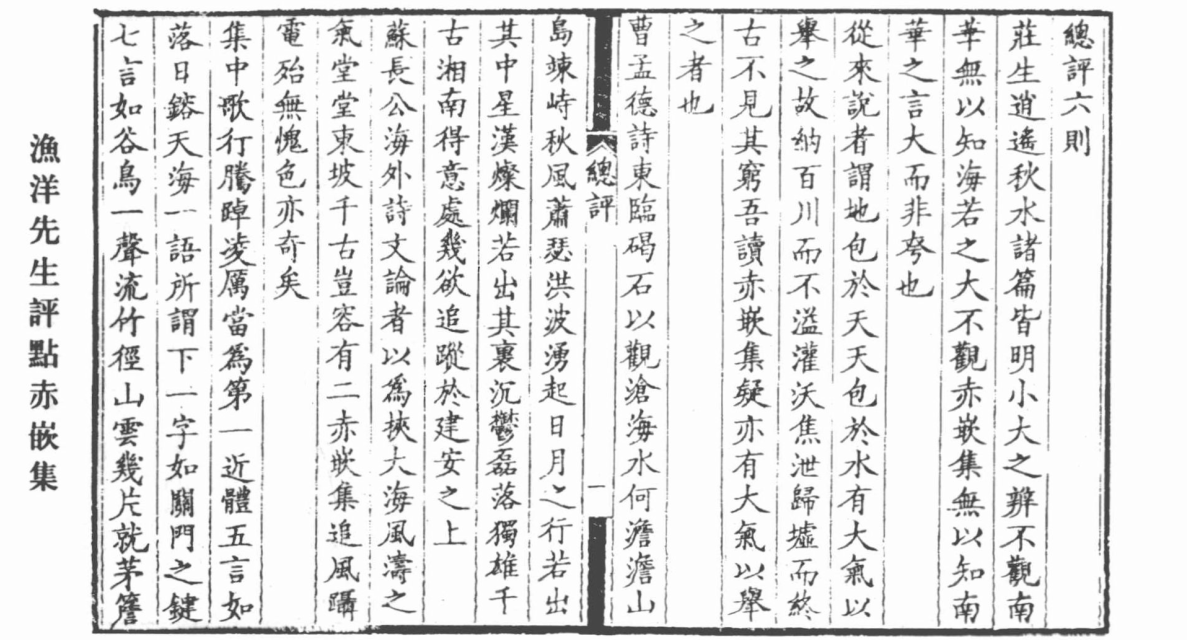 總評六則
莊生逍遙秋水諸篇皆明小大之辨不觀南
華無以知海若之大不觀赤嵌集無以知南
華之言大而非夸也
從來說者謂地包於天天包於水有大氣以
舉之故納百川而不溢灌沃焦泄歸墟而終
古不見其窮吾讀赤嵌集疑亦有大氣以舉
之者也
曹孟德詩東臨碣石以觀滄海水何澹澹山
總評
一
島竦峙秋風蕭瑟洪波湧起日月之行若出
其中星漢燦爛若出其裏沉鬱磊落獨雄千
古湘南得意處幾欲追蹤於建安之上
蘇長公海外詩文論者以為挾大海風濤之
氣堂堂東坡千古豈容有二赤嵌集追風躡
電殆無愧色亦奇矣
集中歌行騰踔凌厲當為第一近體五言如
落日鎔天海一語所謂下一字如關門之鍵
七言如谷鳥一聲流竹徑山雲幾片就茅簷
漁洋先生評點赤嵌集